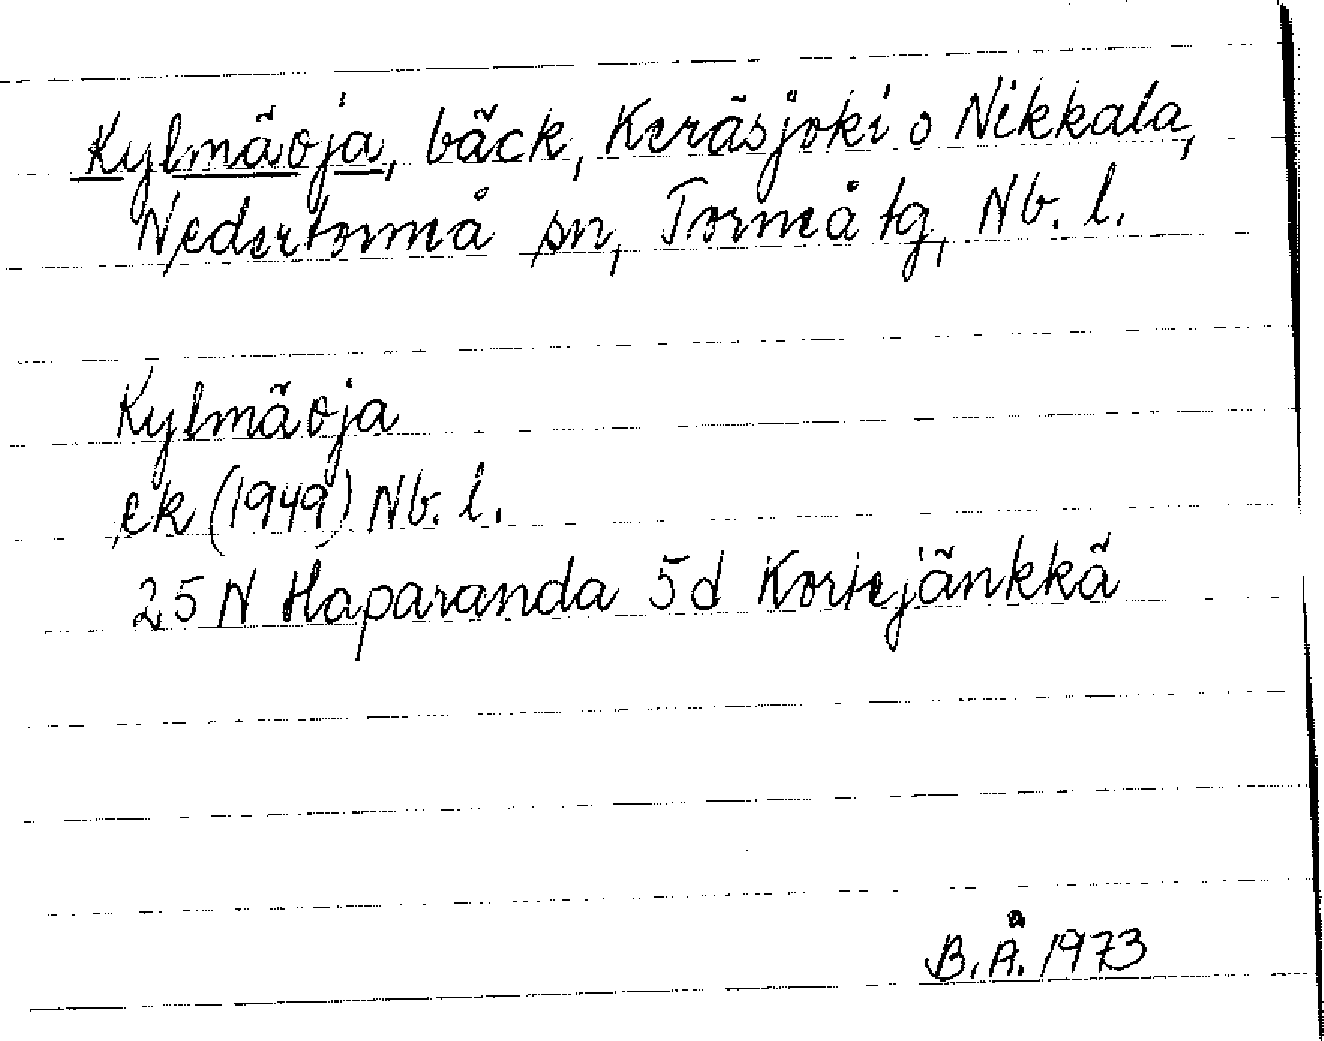 Kylmäoja, bäck, Keräsjoki o Nikkala,
Nedertorneå sn, Torneå tg, Nb. l.
Kylmäoja
ek (1949) Nb. l.
25 N Haparanda 5d Kortejänkkä
B.Å. 1973